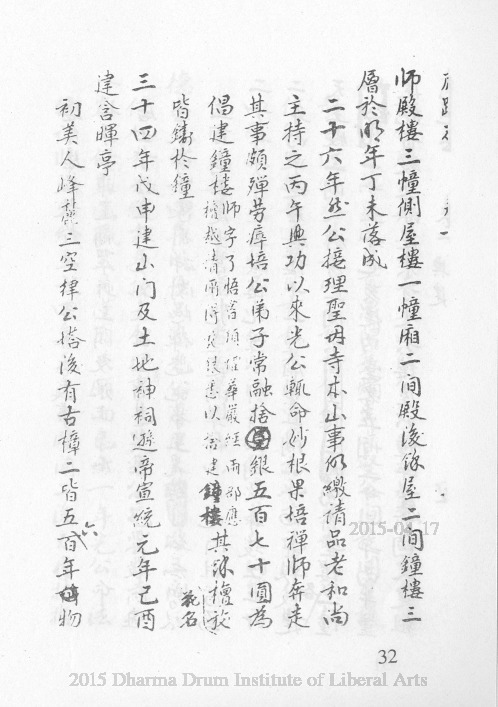 師殿樓三幢側屋樓一幢廂二间殿後餘屋二间鐘樓三
層於明年丁未落成
二十六年然公接理聖因寺本山事仍繳请品老和尚
主持之丙午興功以來光公輒命妙根果培禪师奔走
其事頗殫劳瘁培公弟子常融捨銀五百七十圓為
倡建鐘樓师字了悟
鐘樓其餘檀施
芳名
皆鑄於鐘
三十四年戊申建山门及土地神祠遜帝宣統元年己酉
建含暉亭
初美人峰麓三空律公塔後有古樟二皆五百年物
六
2015-04-17
32
2015 Dharma Drum Institute of Liberal Arts